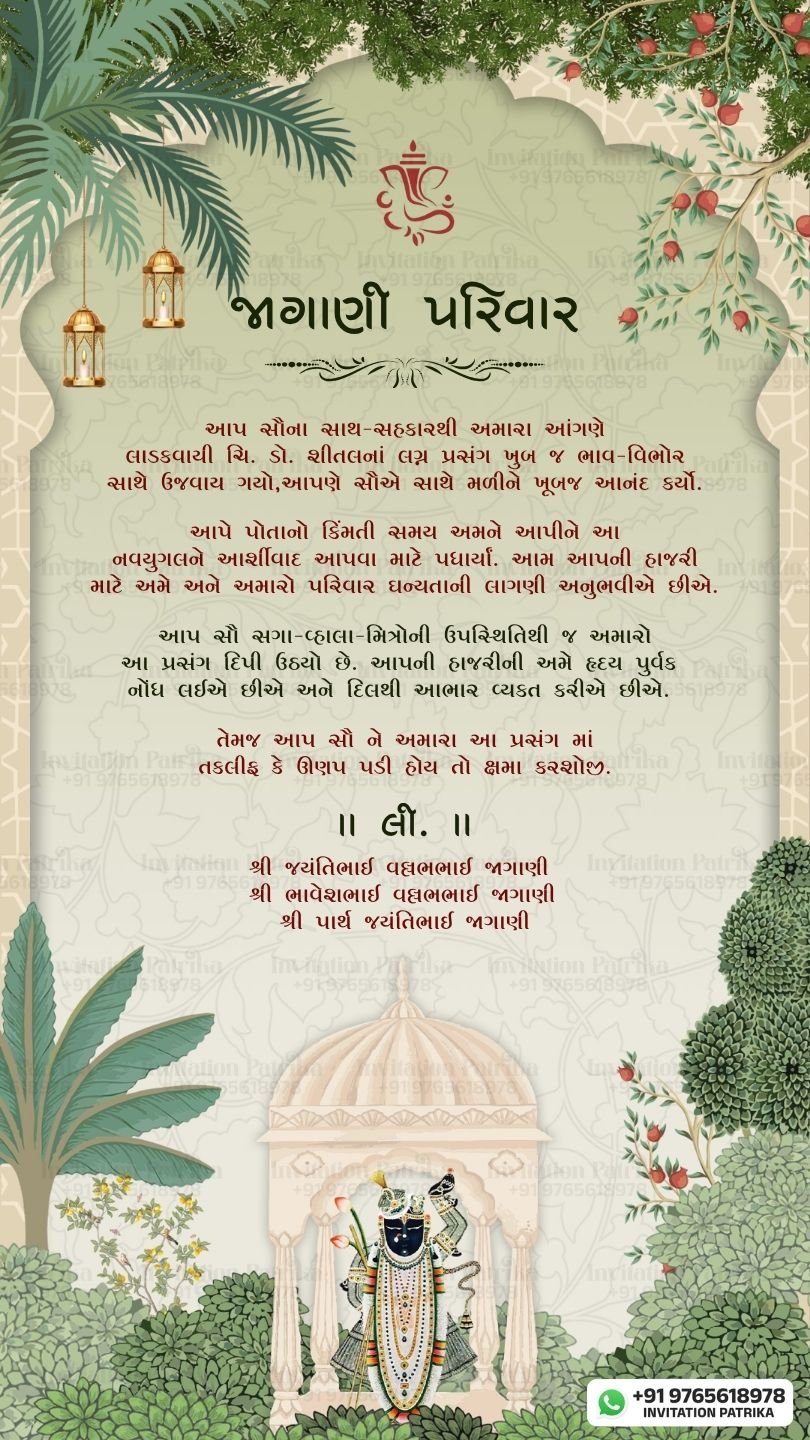 જાગાણી પરિવાર
આપ સૌના સાથ-સહકારથી અમારા આંગણે
લાડકવાયી ચિ. ડો. શીતલનાં લગ્ન પ્રસંગ ખુબ જ ભાવ-વિભોર
સાથે ઉજવાય ગયો,આપણે સૌએ સાથે મળીને ખૂબજ આનંદ કર્યો.
આપે પોતાનો કિંમતી સમય અમને આપીને આ
નવયુગલને આર્શીવાદ આપવા માટે પધાર્યાં. આમ આપની હાજરી
માટે અમે અને અમારો પરિવાર ઘન્યતાની લાગણી અનુભવીએ છીએ.
આપ સૌ સગા-વ્હાલા-મિત્રોની ઉપસ્થિતિથી જ અમારો
આ પ્રસંગ દિપી ઉઠયો છે. આપની હાજરીની અમે હૃદય પુર્વક
નોંધ લઈએ છીએ અને દિલથી આભાર વ્યકત કરીએ છીએ.
તેમજ આપ સૌ ને અમારા આ પ્રસંગ માં
તકલીફ કે ઊણપ પડી હોય તો ક્ષમા કરશોજી.
॥ લી. ॥
શ્રી જયંતિભાઈ વલ્લભભાઈ જાગાણી
શ્રી ભાવેશભાઈ વલ્લભભાઈ જાગાણી
શ્રી પાર્થ જયંતિભાઈ જાગાણી
+91 9765618978
INVITATION PATRIKA